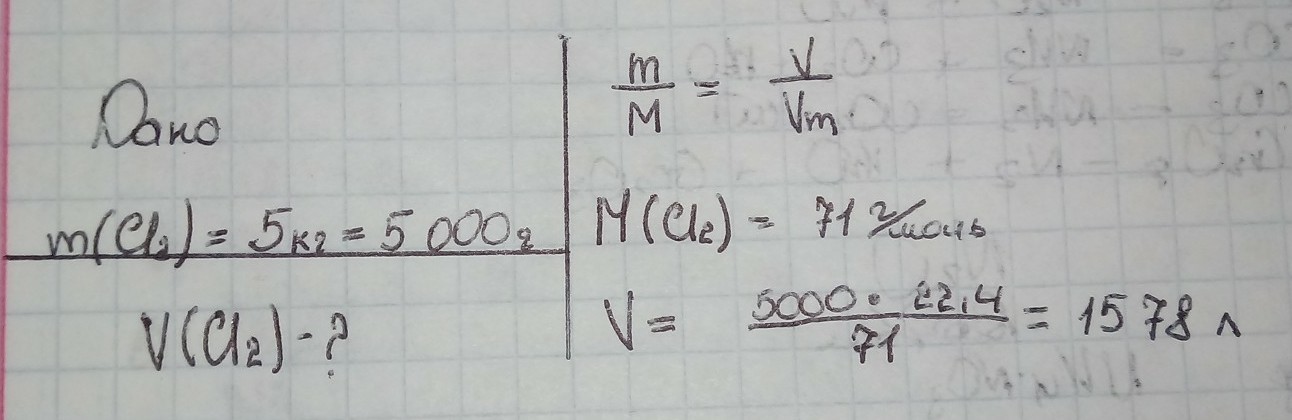 Дано
m(Cl₂) = 5кг = 5 000г
V(Cl₂) - ?
m/M = V/Vm
M(Cl₂) = 71 г/моль
V = 5000 · 22,4 / 71 = 1578 л